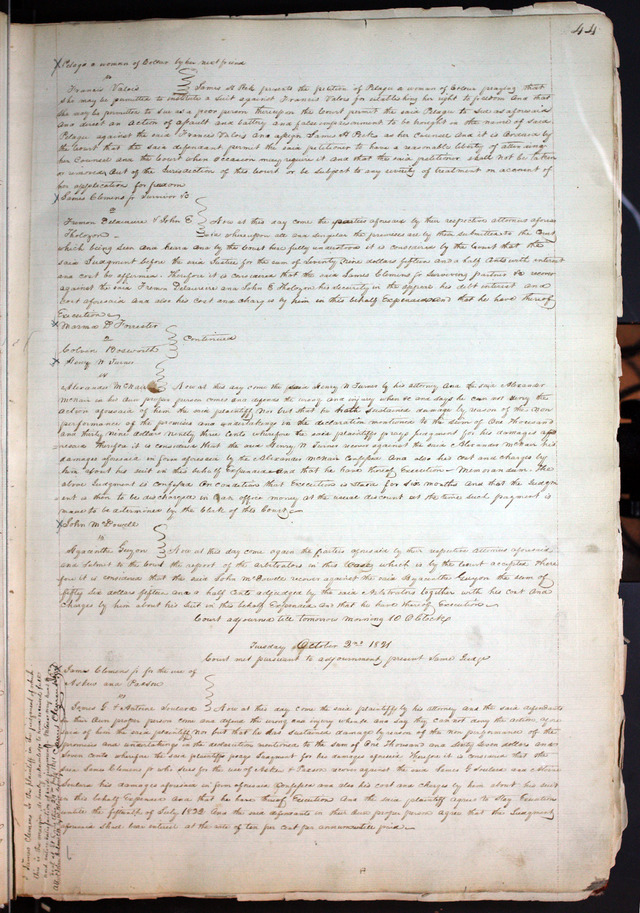 44
Pelagie a woman of Colour by her next friend
vs
Francis Valois } James H Peck presents the petition of Pelagie a woman of Colour praying that
she may be permitted to institute a suit against Francis Valois for establishing her right to freedom and that
she may be permitted to sue as a poor person thereupon the Court permit the said Pelagie to sue as aforesaid
and direct an action of assault and battery and false imprisonment to be brought in the name of said
Pelagie against the said Francis Valois and assign James H Peck as her Counsel and it is ordered by
the Court that the said defendant permit the said petitioner to have a reasonable liberty of attending
her Counsel and the Court when occasion may require it and that the said petitioner shall not be taken
or removed out of the Jurisdiction of this Court or be subject to any severity of treatment on account of
her application for freedom
James Clemens jr Survivor &c
vs
Fremon Delauriere & John E } Now at this day come the parties aforesaid by their respective attornies aforesaid
Tholozon
whereupon all and singular the premises are by them submitted to the Court
which being seen and heard and by the Court here fully understood it is considered by the Court that the
said Judgment before the said Justice for the sum of Seventy Nine dollars fifteen and a half Cents with interest
and cost be affirmed. Therefore it is considered that the said James Clemens jr Surviving partner &c recover
against the said Fremon Delauriere and John E Tholozon his security in the appeal his debt interest and
cost aforesaid and also his cost and charges by him in this behalf Expended and that he have thereof
Execution
Marma D Forrester
vs
Colvin Bosworth } Continued
Henry N Turner
vs
Alexander McNair } Now at this day come the said Henry N Turner by his attorney and the said Alexander
McNair in his own proper person comes and defends the wrong and injury when &c and says he can not deny the
action aforesaid of him the said plaintiff Nor but that he hath sustained damage by reason of the non
performance of the promises and undertakings in the declaration mentioned to the sum of One Thousand
and thirty nine dollars ninety three Cents wherefore the said plaintiff prays Judgment for his damages afo
resaid Therefore it is considered that the said Henry N Turner recover against the said Alexander McNair his
damages aforesaid in form aforesaid by the Alexander McNair Confessed and also his cost and charges by
him about his suit in this behalf Expended and that he have thereof Execution — Memorandum. The
above Judgment is confessed on condition that Execution is stayed for six months and that the Judgm
ent is then to be discharged in Loan office money at the usual discount at the time such payment is
made to be determined by the Clerk of this Court
John McDowell
vs
Hyacinthe Guyon } Now at this day come again the parties aforesaid by their respective attornies aforesaid
and submit to the Court the report of the arbitrators in this Case which is by the Court accepted There
fore it is considered that the said John McDowell recover against the said Hyacinthe Guyon the sum of
fifty six dollars fifteen and a half Cents adjudged by the said Arbitrators together with his cost and
charges by him about his suit in this behalf Expended and that he have thereof Execution
Court adjourned till tomorrow morning 10 O'Clock
Tuesday October 2nd 1821
Court met pursuant to adjournment, present same Judge
James Clemens jr for the use of
Askew and Paxson
vs
James G & Antoine Soulard } Now at this day come the said plaintiff by his attorney and the said defendants
in their own proper person come and defend the wrong and injury when &c and say they can not deny the action afore
said of him the said plaintiff Nor but that he has sustained damage by reason of the non performance of the
promises and undertakings in the declaration mentioned to the sum of One Thousand and sixty Seven dollars and
Seven Cents wherefore the said plaintiff prays Judgment for his damages aforesaid Therefore it is considered that the
said James Clemens jr who sues for the use of Askew & Paxson recover against the said James G Soulard and Antoine
Soulard his damages aforesaid in form aforesaid Confessed and also his cost and charges by him about his suit
in this behalf Expended and that he have thereof Execution and the said plaintiff agrees to Stay Execution
until the fifteenth of July 1822 and the said defendants in their own proper person agree that the Judgment
aforesaid shall bear interest at the rate of ten per cent per annum till paid
I James Clemens jr the plaintiff in the judgment of which
this is the margin, do hereby acknowledge to have received full